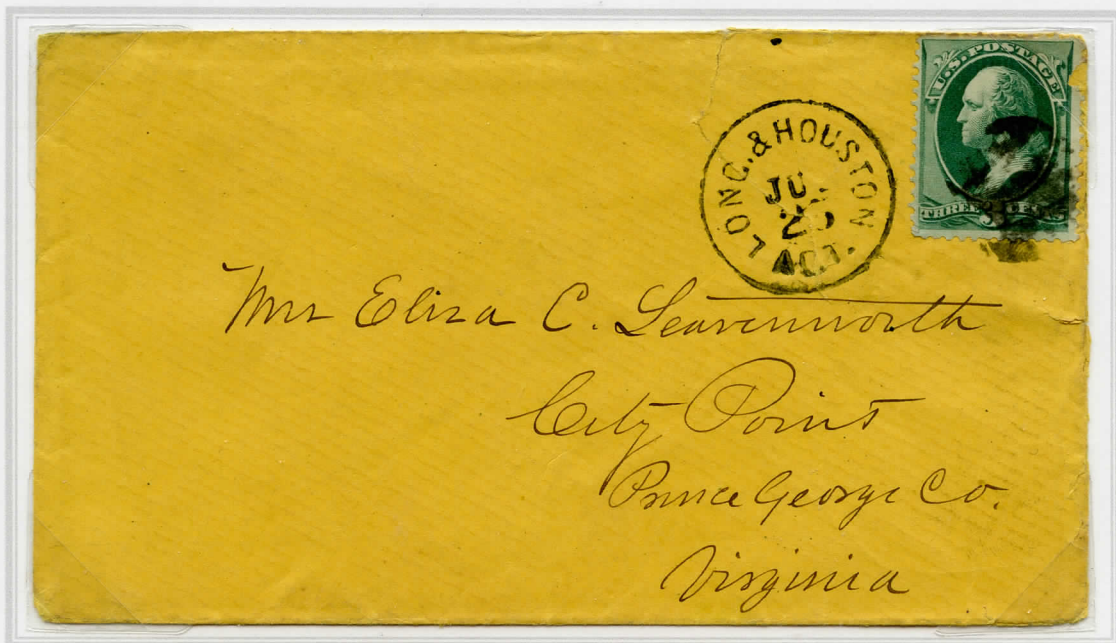 U.S. POSTAGE
THREE CENTS
LONG. & HOUSTON
25
AGT.
Mrs Eliza C. Leavenworth
City Point
Prince George Co.
Virginia